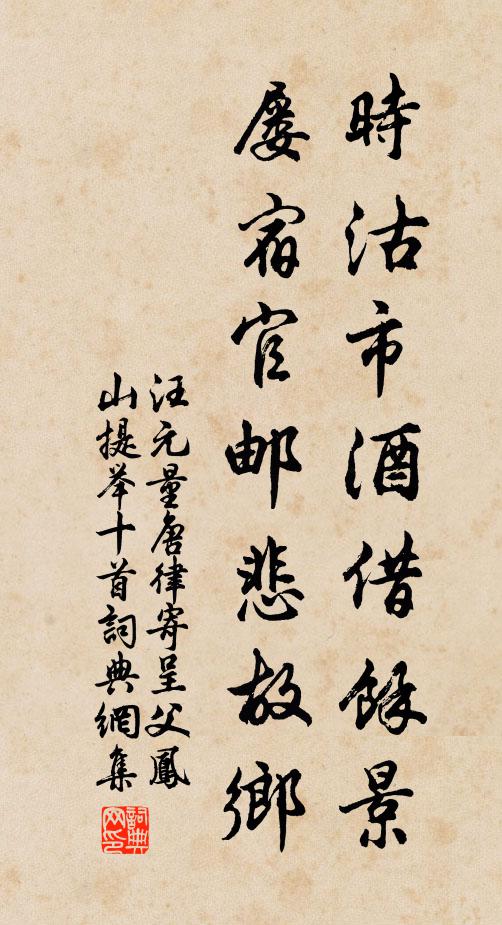 時沽市酒借餘景
屡宿官邮悲故鄉
汪元量唐律寄呈父鳳
山提举十首詞典網集
詞典网印